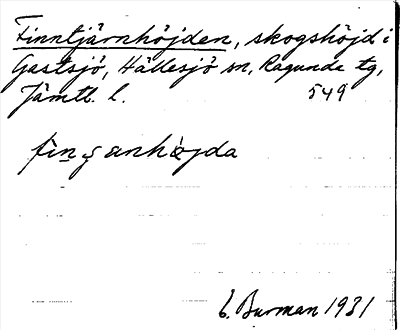 Finntjärnhöjden, skogshöjd i
Gastsjö, Hällesjö sn, Ragunda tg,
Jämtl. l. 549
fìn̯ ʂanhöjda
E. Burman 1931